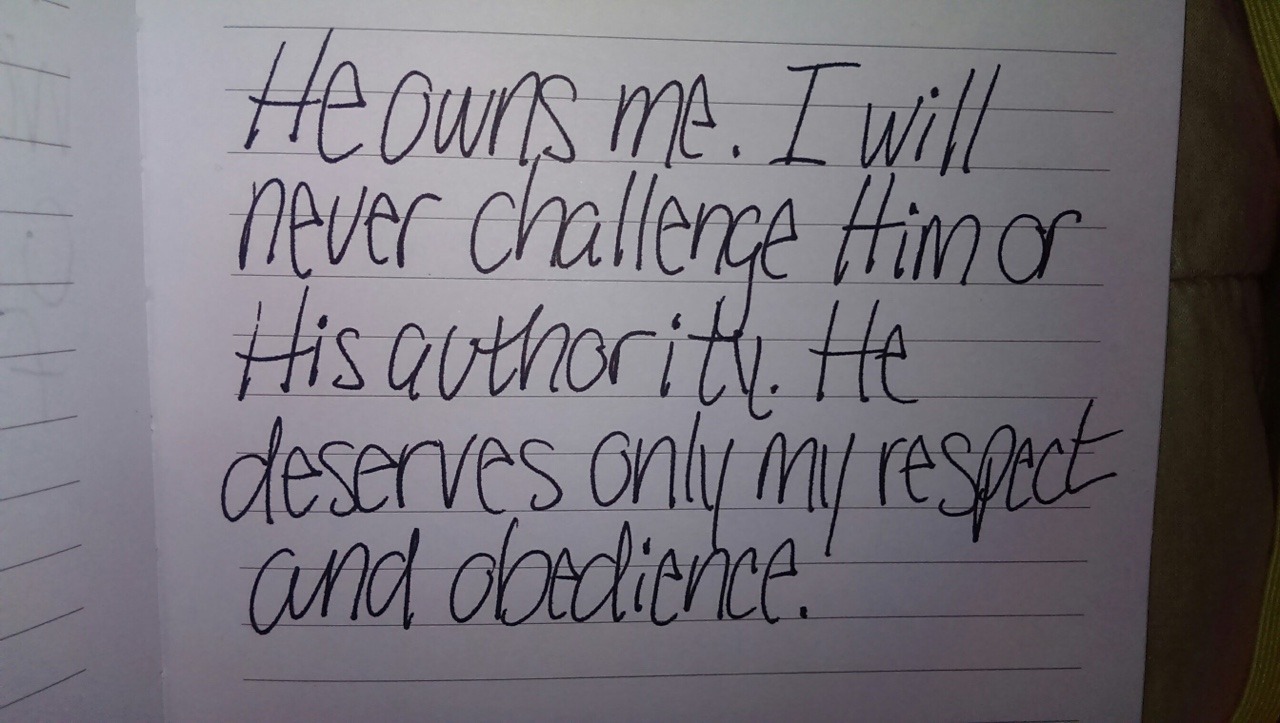 He owns me. I will
never challenge Him or
His authority. He
deserves only my respect
and obedience.